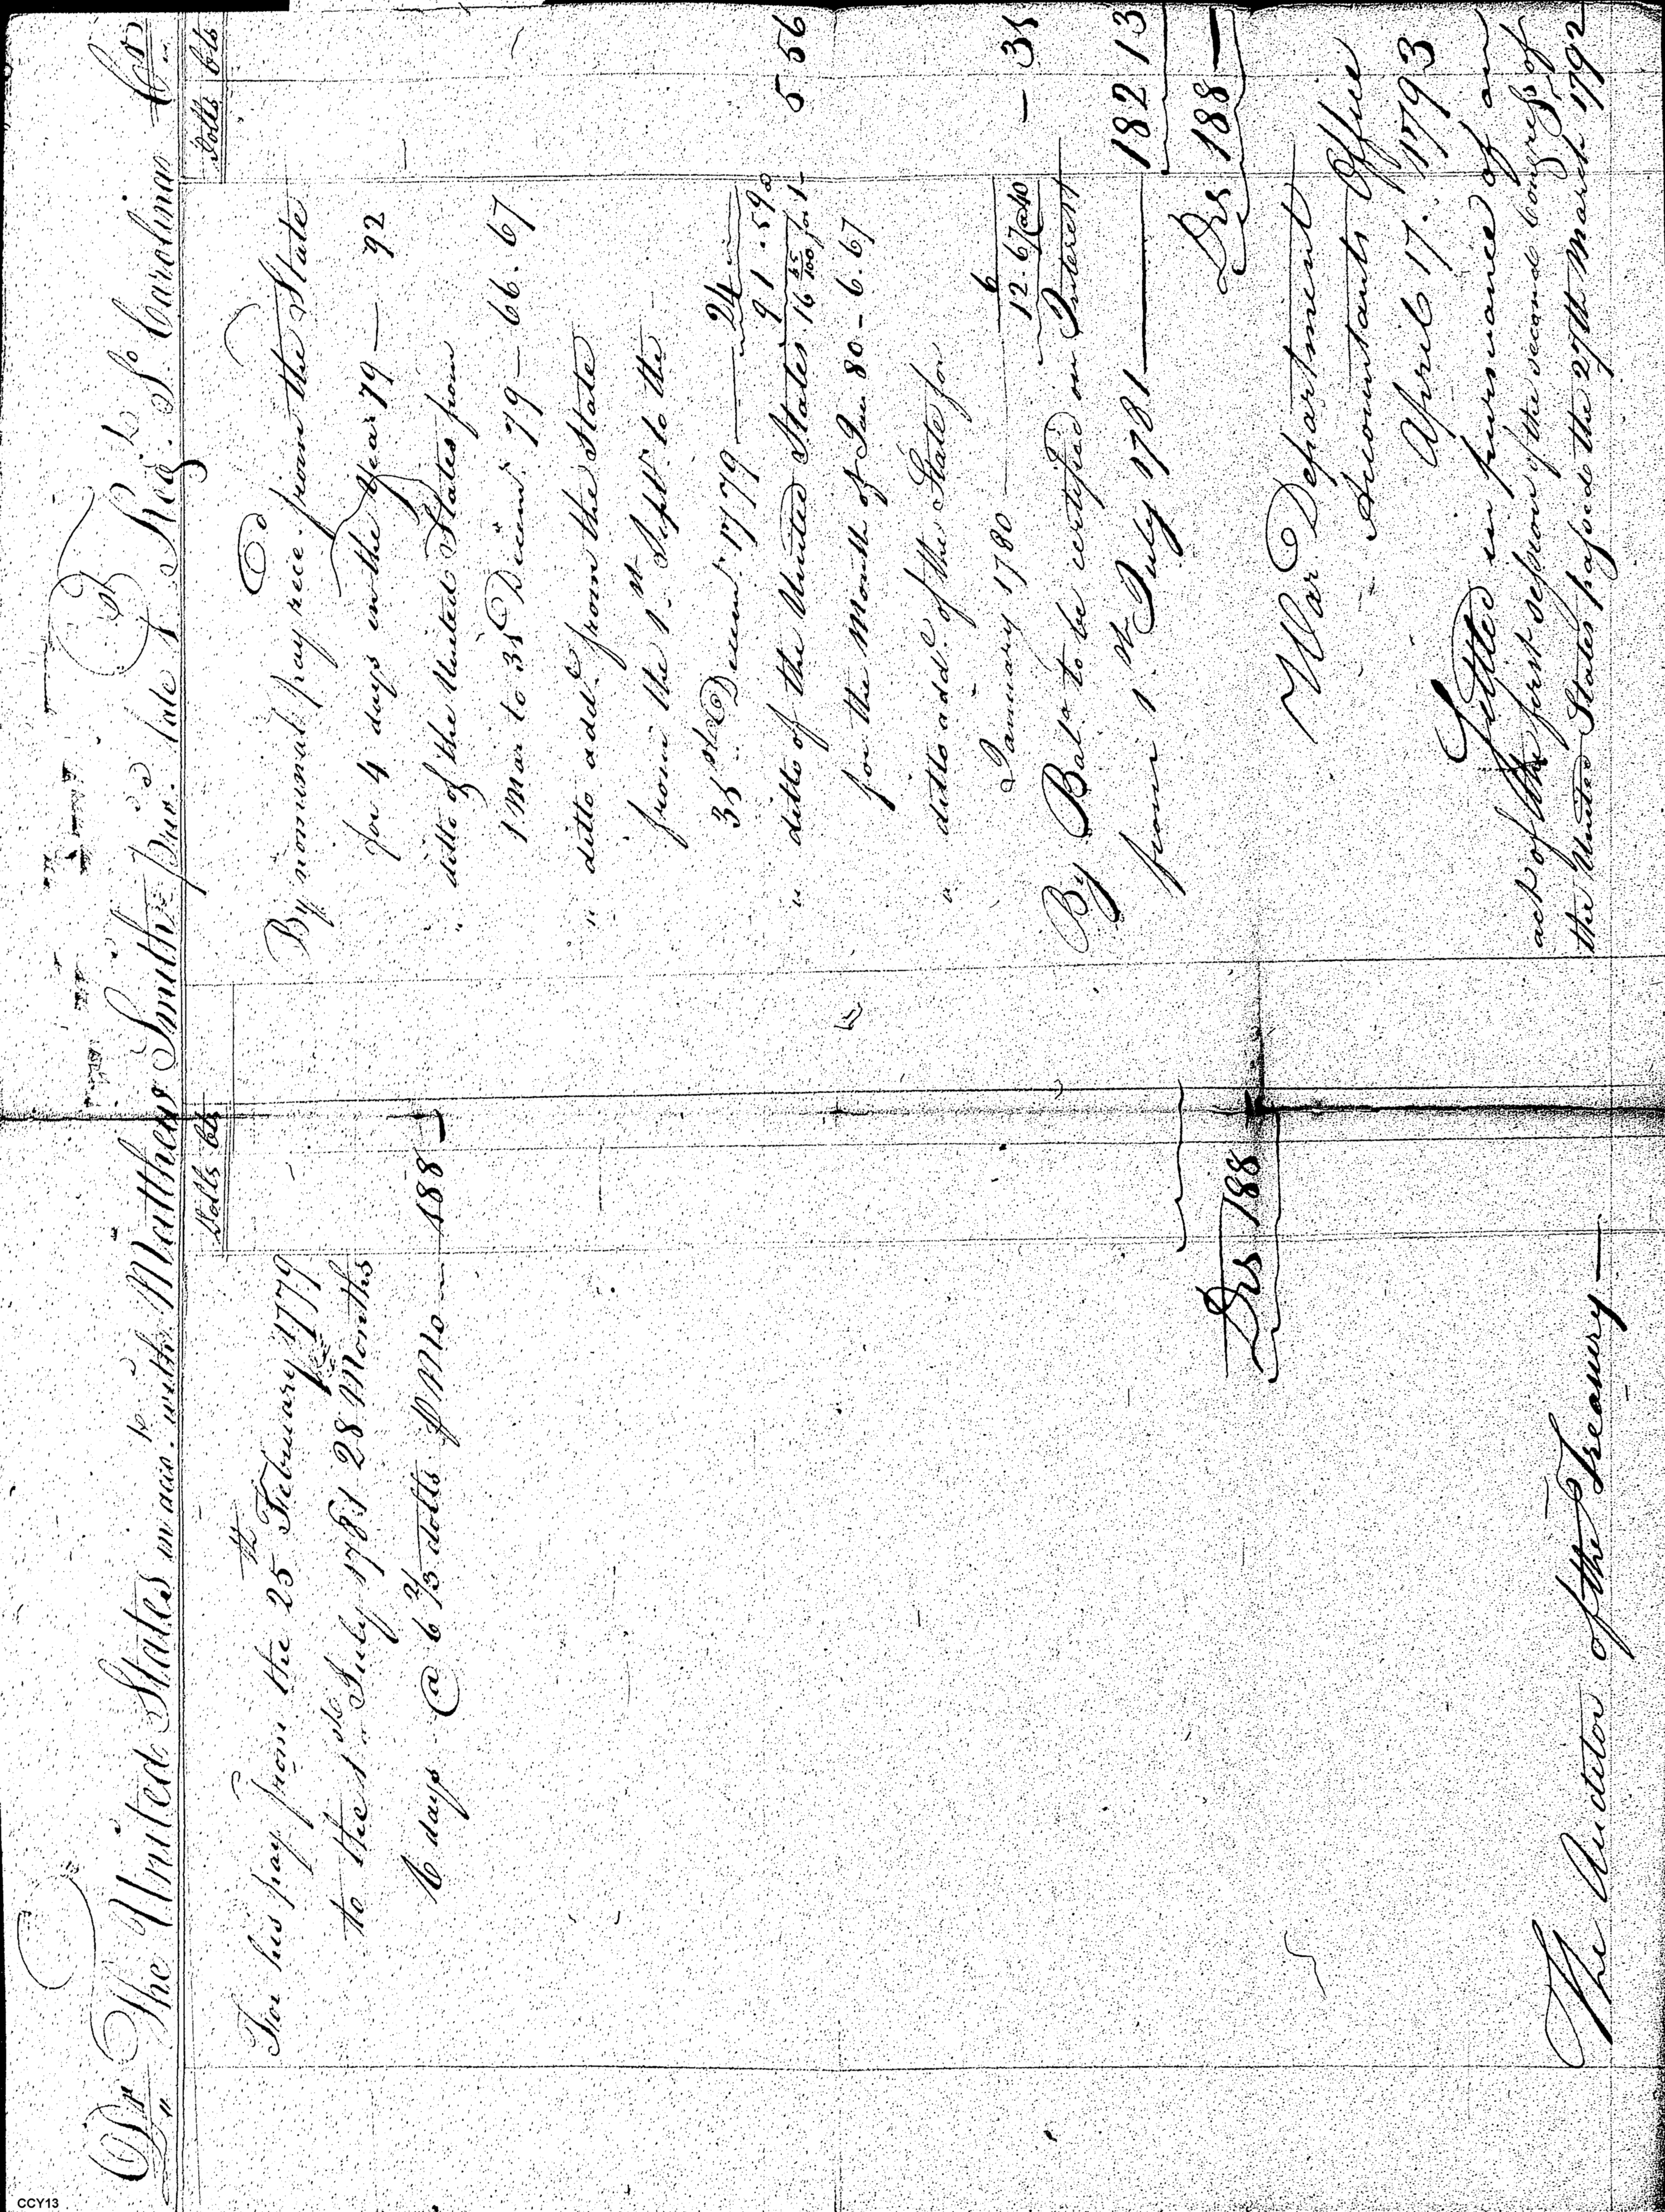 Dr The United States in acco.t with Matthew Smith priv. late 1 Reg.t So. Carolina Cr
Dolls Cts
For his pay from the 25th February 1779
to the 1st July 1781 28 Months
6 days @ 6 2/3 dolls ⅌ Mo — 188 —
Drs 188
The Auditor of the Treasury —
Dolls Cts
By nominal pay rec.d from the State
for 4 days in the year 79 — 92
" ditto of the United States from
1 Mar to 31 Decem.r 79 — 66.67
" ditto add.l from the State
from the 1.st Sept.r to the
31st Decem.r 1779 — 24
91.59
" ditto of the United States 16 65/100 for 1 — 5 56
for the month of Jan 80 - 6.67
" ditto add.l of the State for
January 1780 — 6
12.67 @ 40 — 31
By Bal.a to be certified on Interest
from 1.st July 1781 — 182 13
Drs 188 —
War Department
Accountants Office
April 17. 1793
Settled in pursuance of an
act of the first session of the second Congress of
the United States passed the 27th March 1792
CCY13